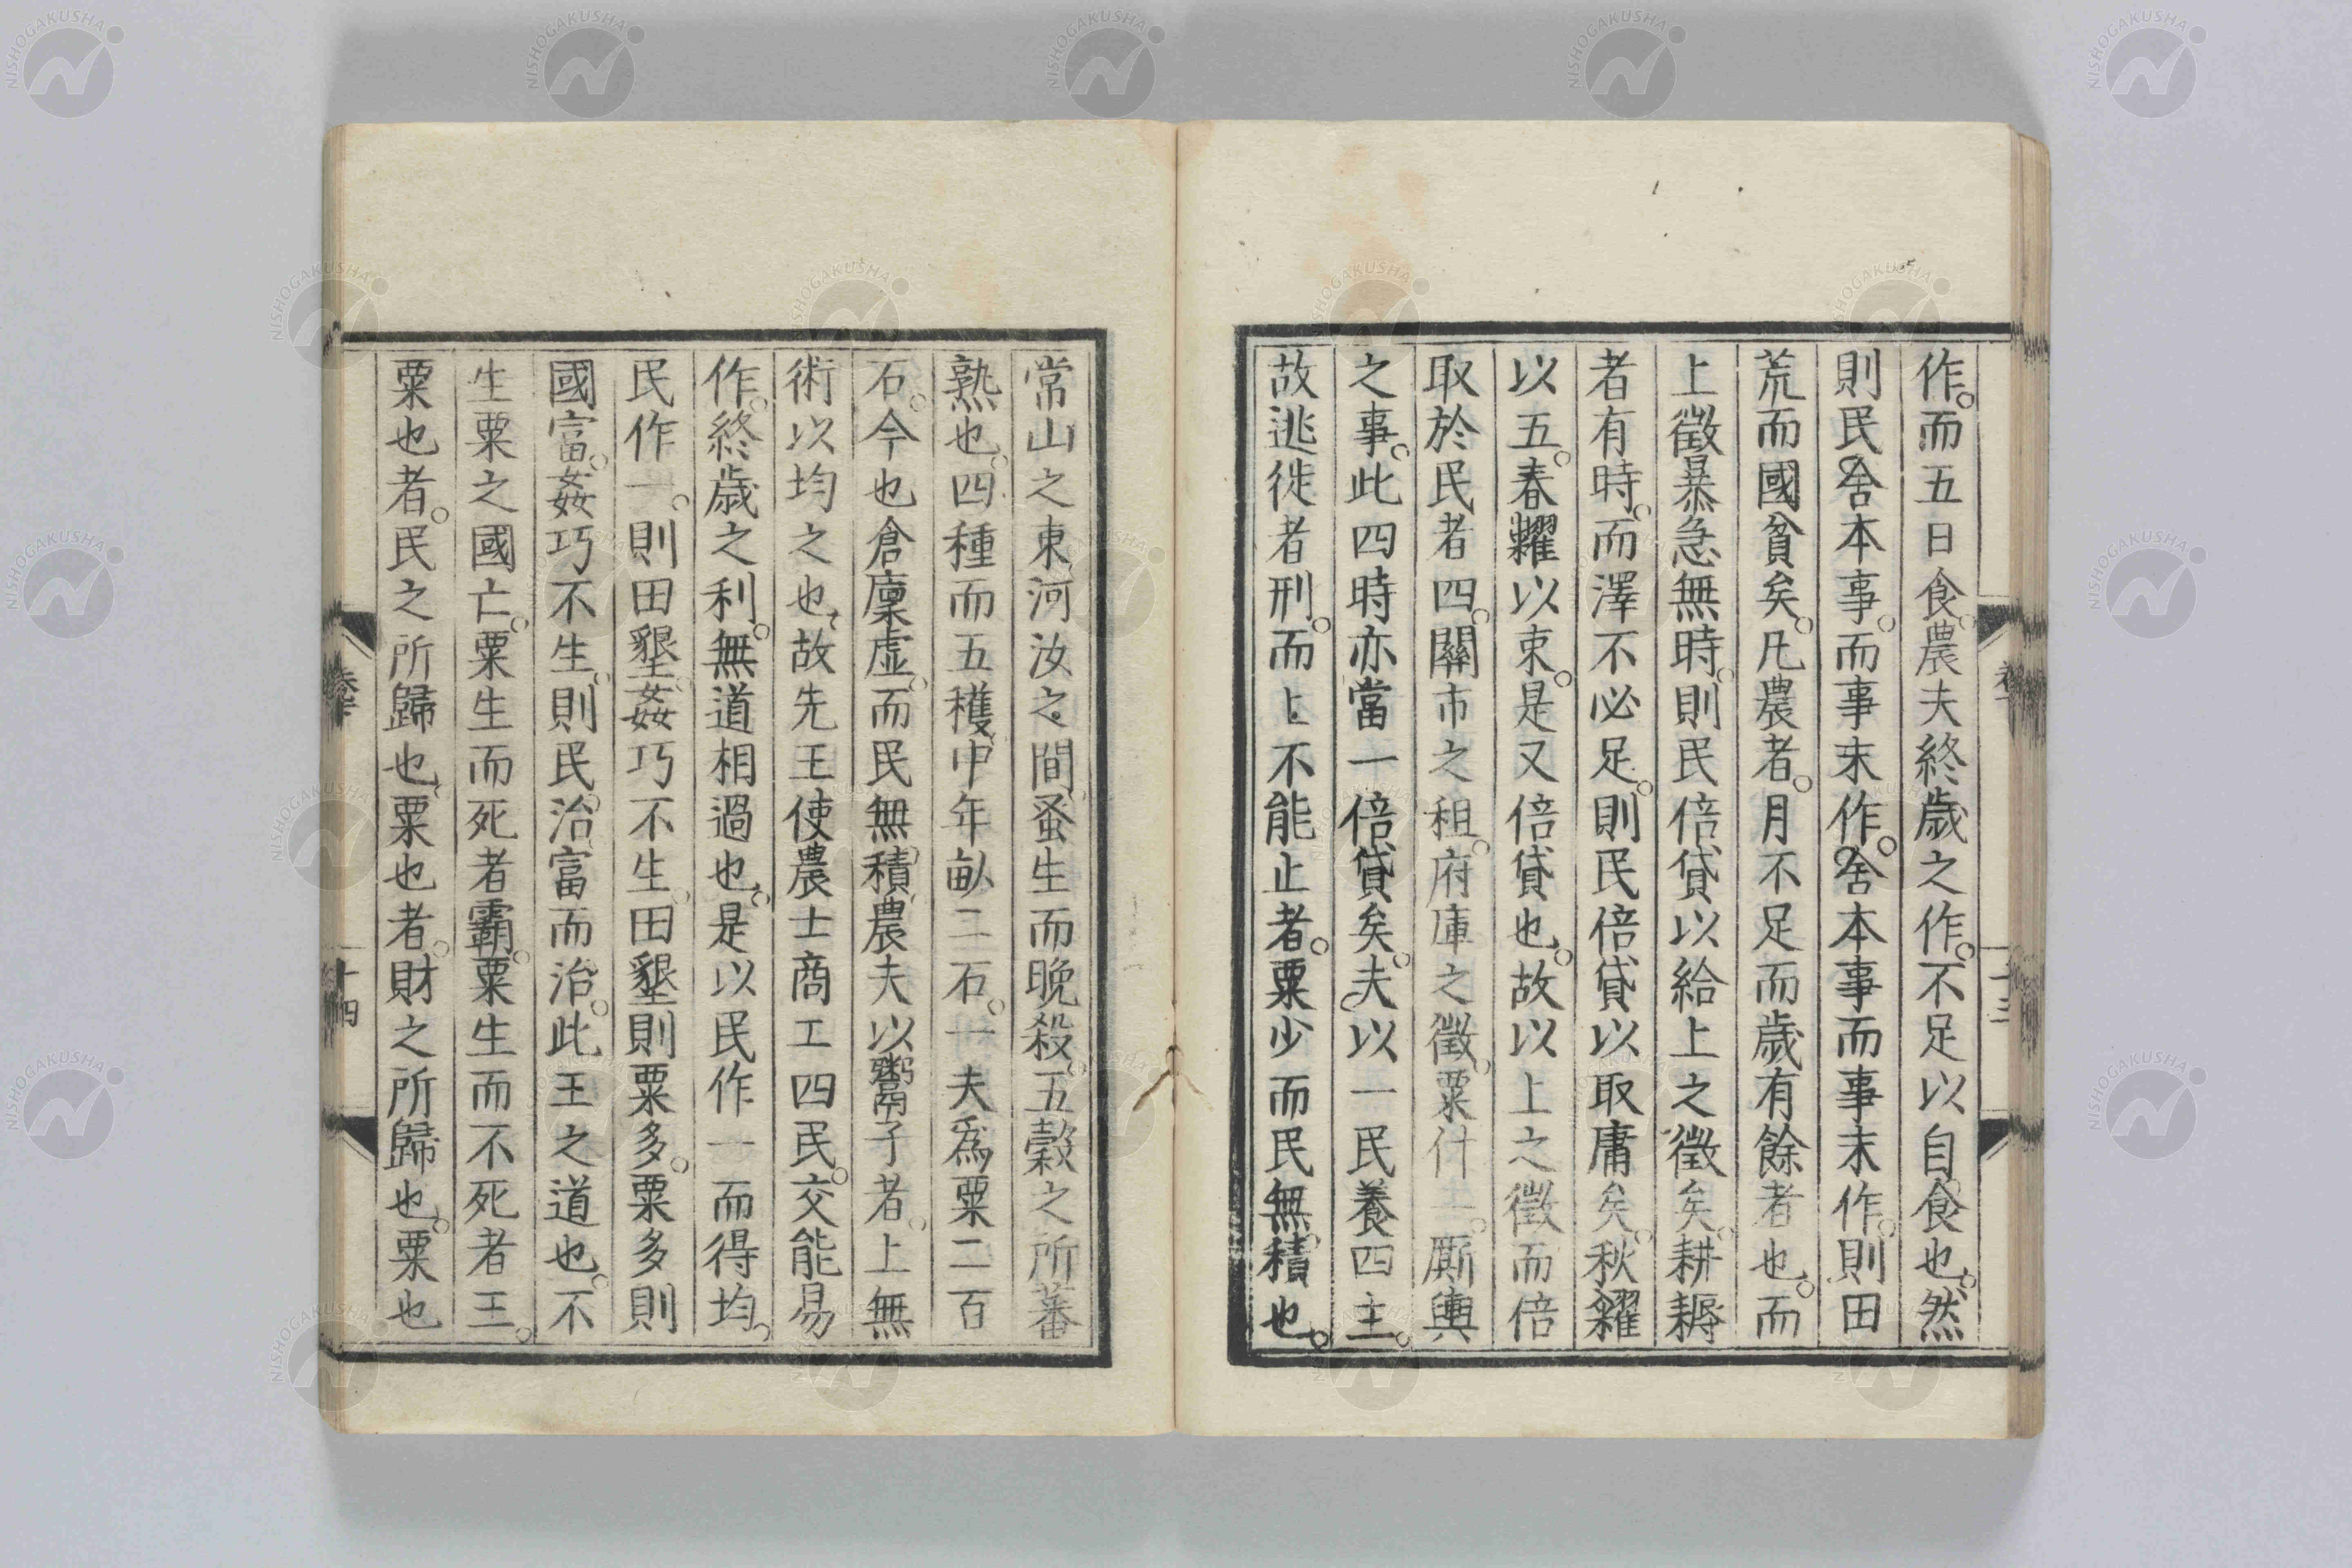 作。而五日食。農夫終歲之作。不足以自食也。然
則民舍本事。而事末作。舍本事而事末作。則田
荒而國貧矣。凡農者。月不足而歲有餘者也。而
上徵暴急無時。則民倍貸以給上之徵矣。耕耨
者有時。而澤不必足。則民倍貸以取庸矣。秋糴
以五。春糶以束。是又倍貸也。故以上之徵而倍
取於民者四。關市之租。府庫之徵。粟什一。厮輿
之事。此四時亦當一倍貸矣。夫以一民養四主。
故逃徙者刑。而上不能止者。粟少而民無積也。
常山之東。河汝之間。蚤生而晚殺。五穀之所蕃
熟也。四種而五穫。中年畝二石。一夫爲粟二百
石。今也倉廩虛。而民無積。農夫以鬻子者。上無
術以均之也。故先王使農士商工四民。交能易
作。終歲之利。無道相過也。是以民作一而得均。
民作一。則田墾。姦巧不生。田墾則粟多。粟多則
國富。姦巧不生。則民治。富而治。此王之道也。不
生粟之國亡。粟生而死者霸。粟生而不死者王。
粟也者。民之所歸也。粟也者。財之所歸也。粟也
十四
NISHOGAKUSHA